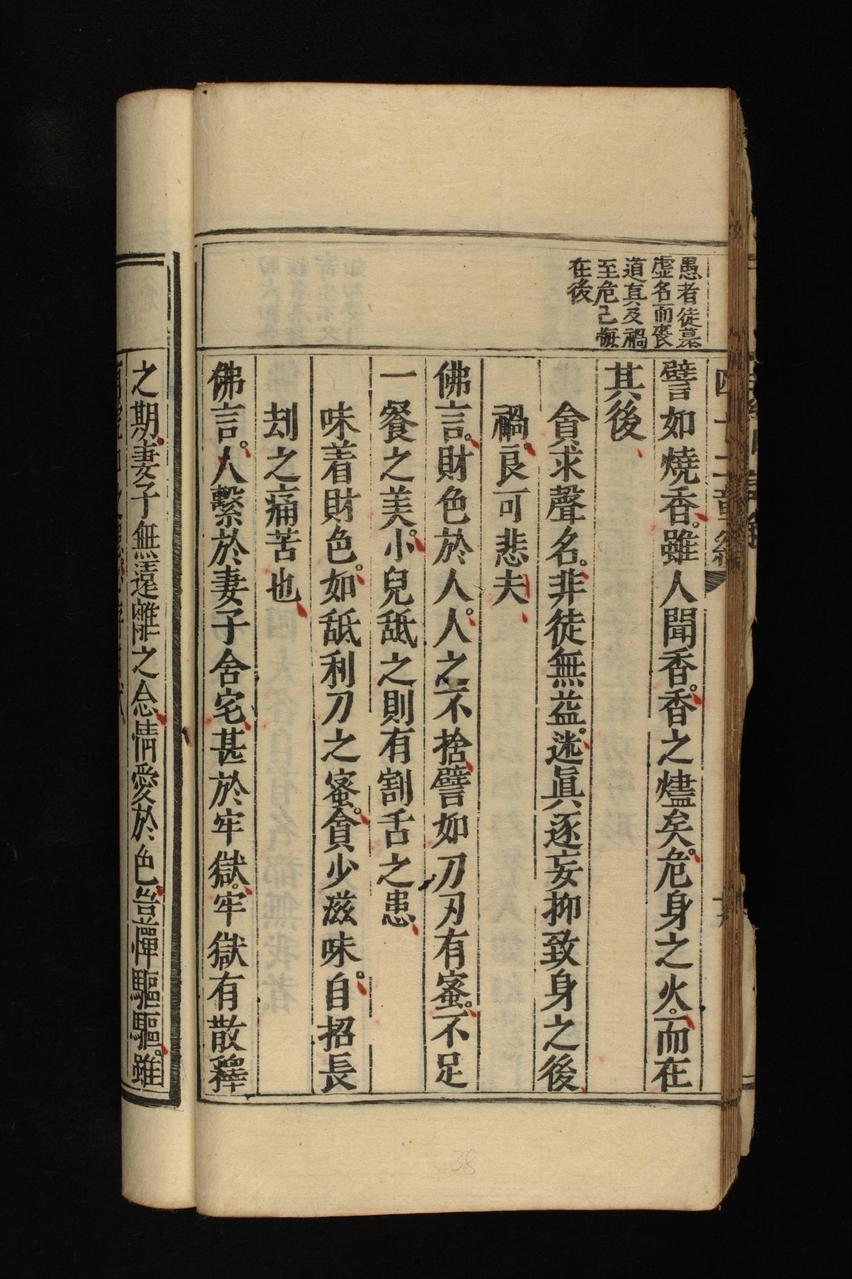 愚者徒慕
虛名而喪
道真及禍
至危己悔
在後
譬如燒香。雖人聞香。香之燼矣。危身之火。而在
其後
貪求聲名。非徒無益。迷眞逐妄抑致身之後
禍。良可悲夫
佛言。財色於人。人之不捨譬如刀刃有蜜。不足
一餐之美。小兒舐之則有割舌之患
味着財色。如舐利刀之蜜。貪少滋味。自招長
刦之痛苦也
佛言。人繫於妻子舍宅。甚於牢獄。牢獄有散釋
之期。妻子無遠離之念。情愛於色。豈憚驅驅。雖
四十二章經
38